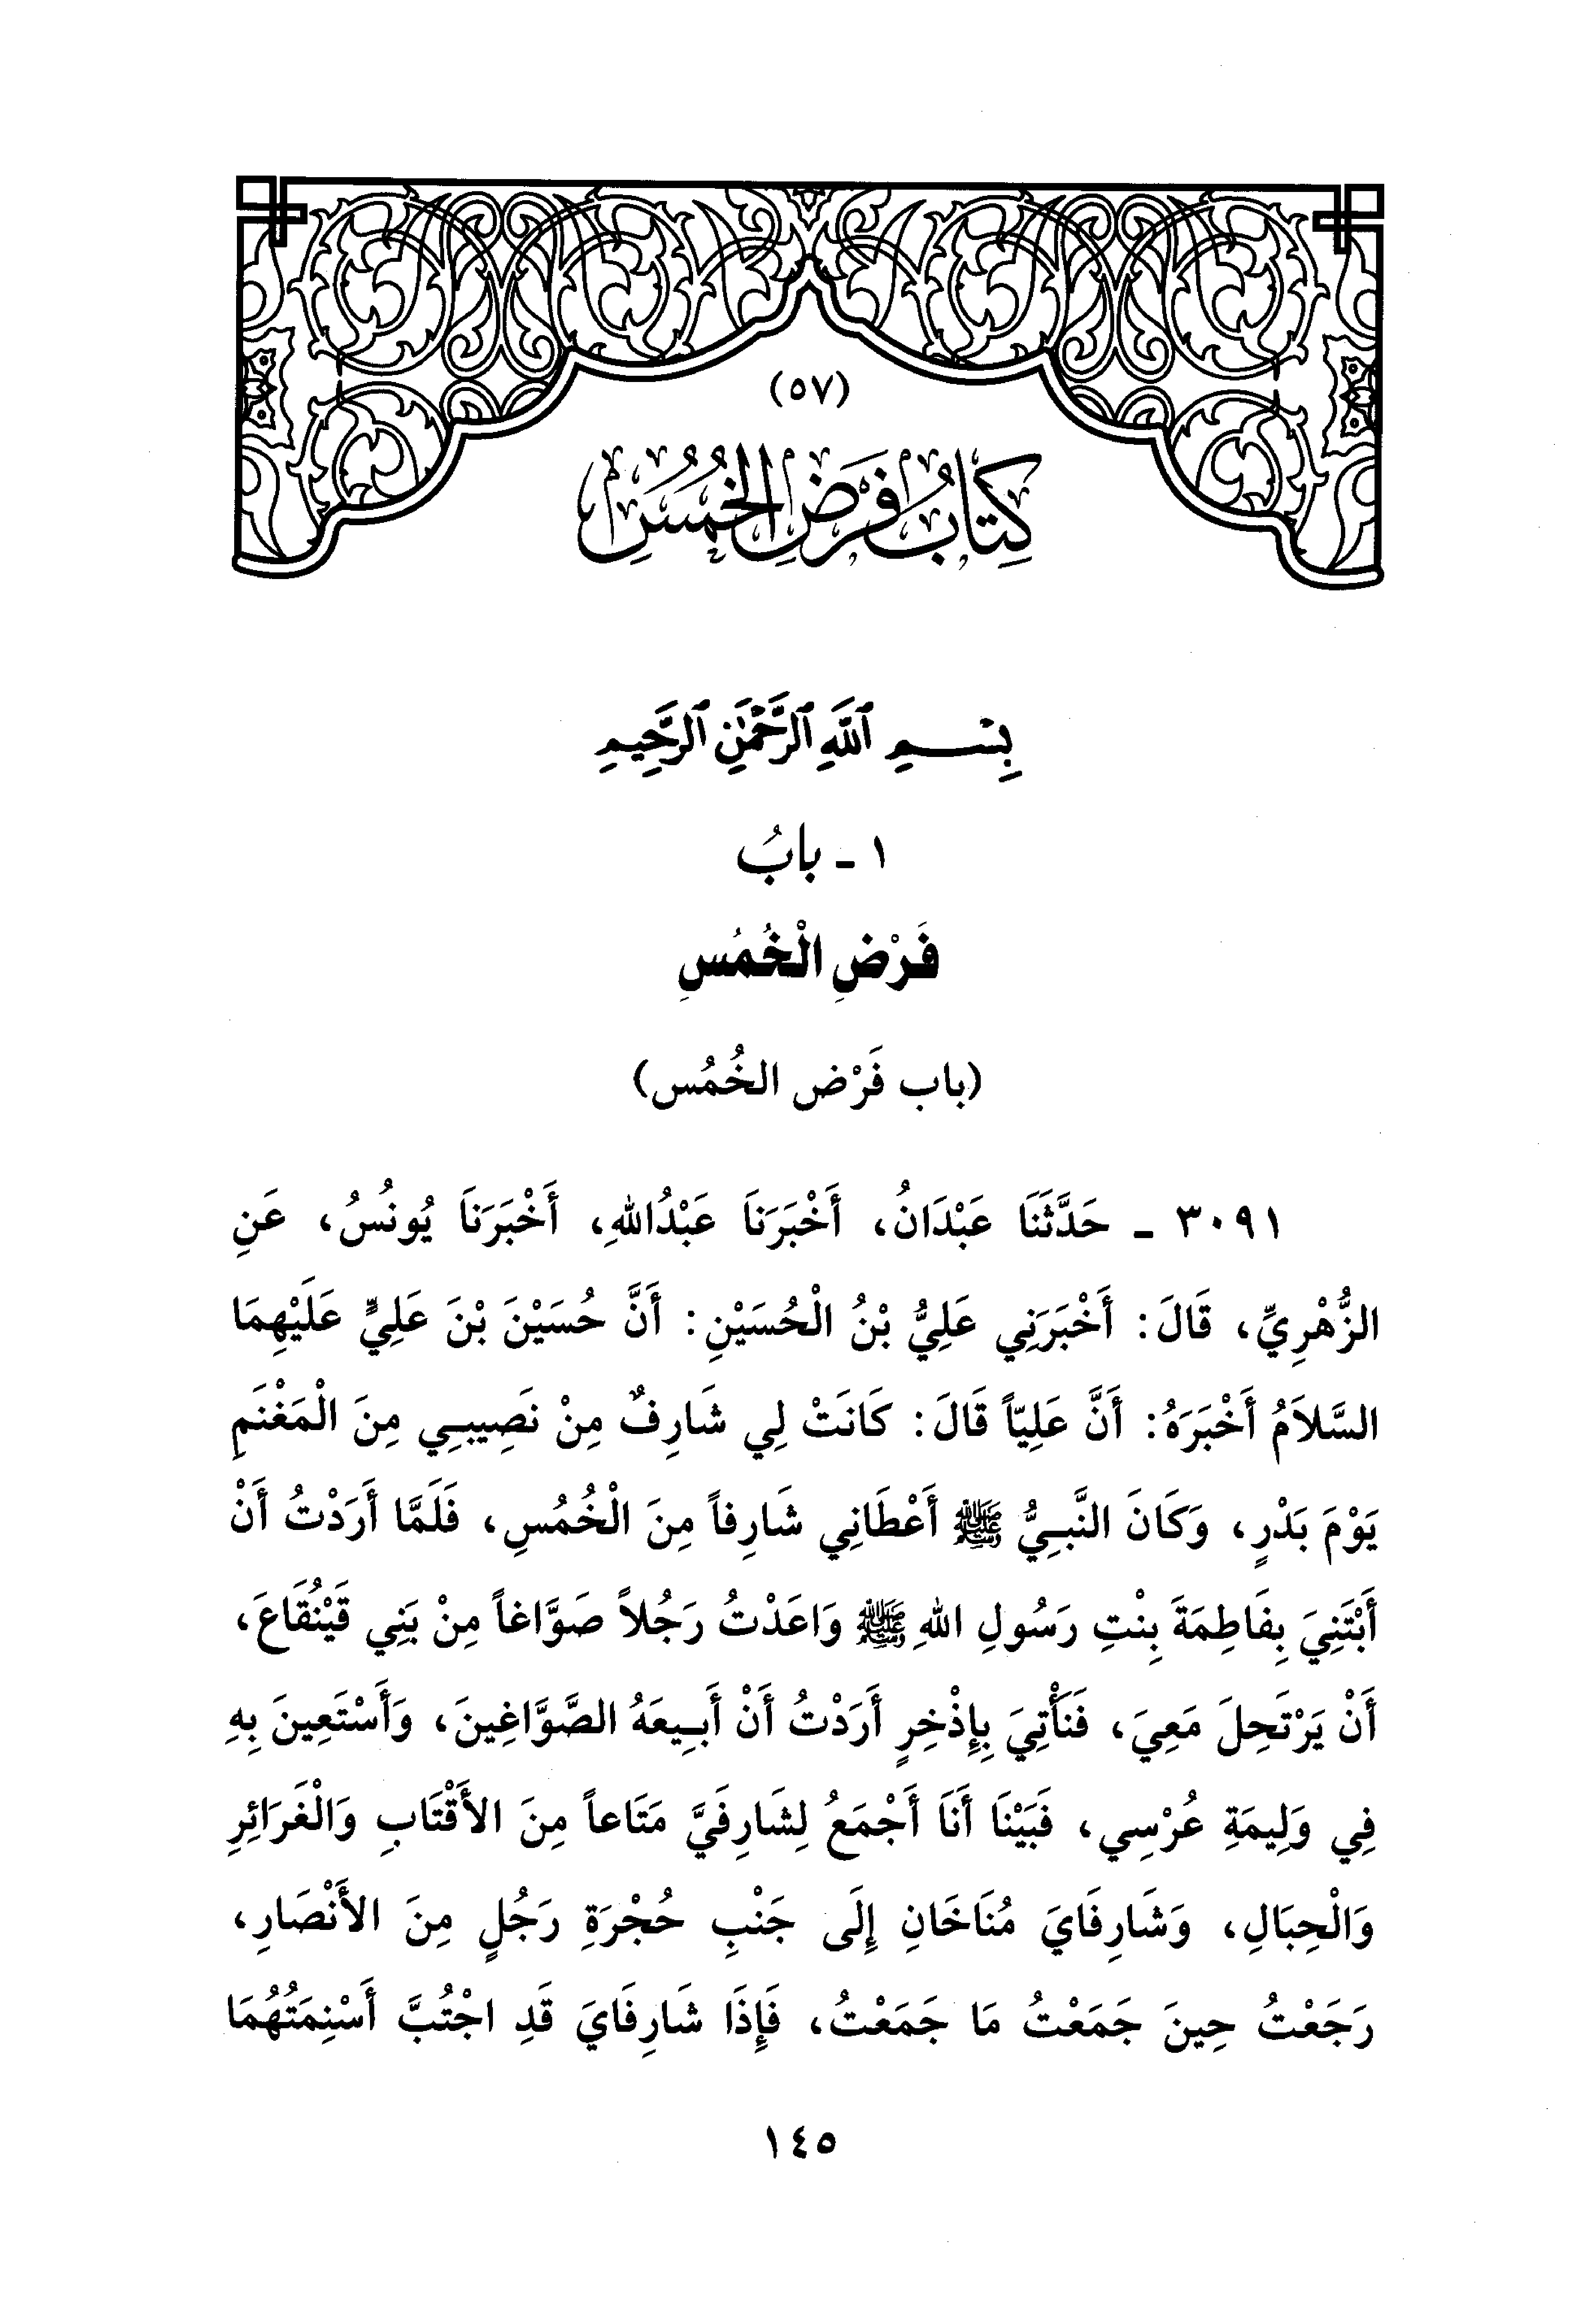 (٥٧)
كِتَابُ فَرْضِ الْخُمُسِ
بِسْمِ ٱللَّهِ ٱلرَّحْمَٰنِ ٱلرَّحِيمِ
١ - بابُ
فَرْضِ الْخُمُسِ
(باب فَرْض الخُمُس)
٣٠٩١ - حَدَّثَنَا عَبْدَانُ، أَخْبَرَنَا عَبْدُاللهِ، أَخْبَرَنَا يُونُسُ، عَنِ
الزُّهْرِيِّ، قَالَ: أَخْبَرَنِي عَلِيُّ بْنُ الْحُسَيْنِ: أَنَّ حُسَيْنَ بْنَ عَلِيٍّ عَلَيْهِمَا
السَّلاَمُ أَخْبَرَهُ: أَنَّ عَلِيّاً قَالَ: كَانَتْ لِي شَارِفٌ مِنْ نَصِيبِي مِنَ الْمَغْنَمِ
يَوْمَ بَدْرٍ، وَكَانَ النَّبِيُّ ﷺ أَعْطَانِي شَارِفاً مِنَ الْخُمُسِ، فَلَمَّا أَرَدْتُ أَنْ
أَبْتَنِيَ بِفَاطِمَةَ بِنْتِ رَسُولِ اللهِ ﷺ وَاعَدْتُ رَجُلاً صَوَّاغاً مِنْ بَنِي قَيْنُقَاعَ،
أَنْ يَرْتَحِلَ مَعِيَ، فَنَأْتِيَ بِإِذْخِرٍ أَرَدْتُ أَنْ أَبِيعَهُ الصَّوَّاغِينَ، وَأَسْتَعِينَ بِهِ
فِي وَلِيمَةِ عُرْسِي، فَبَيْنَا أَنَا أَجْمَعُ لِشَارِفَيَّ مَتَاعاً مِنَ الأَقْتَابِ وَالْغَرَائِرِ
وَالْحِبَالِ، وَشَارِفَايَ مُنَاخَانِ إِلَى جَنْبِ حُجْرَةِ رَجُلٍ مِنَ الأَنْصَارِ،
رَجَعْتُ حِينَ جَمَعْتُ مَا جَمَعْتُ، فَإِذَا شَارِفَايَ قَدِ اجْتُبَّ أَسْنِمَتُهُمَا
١٤٥